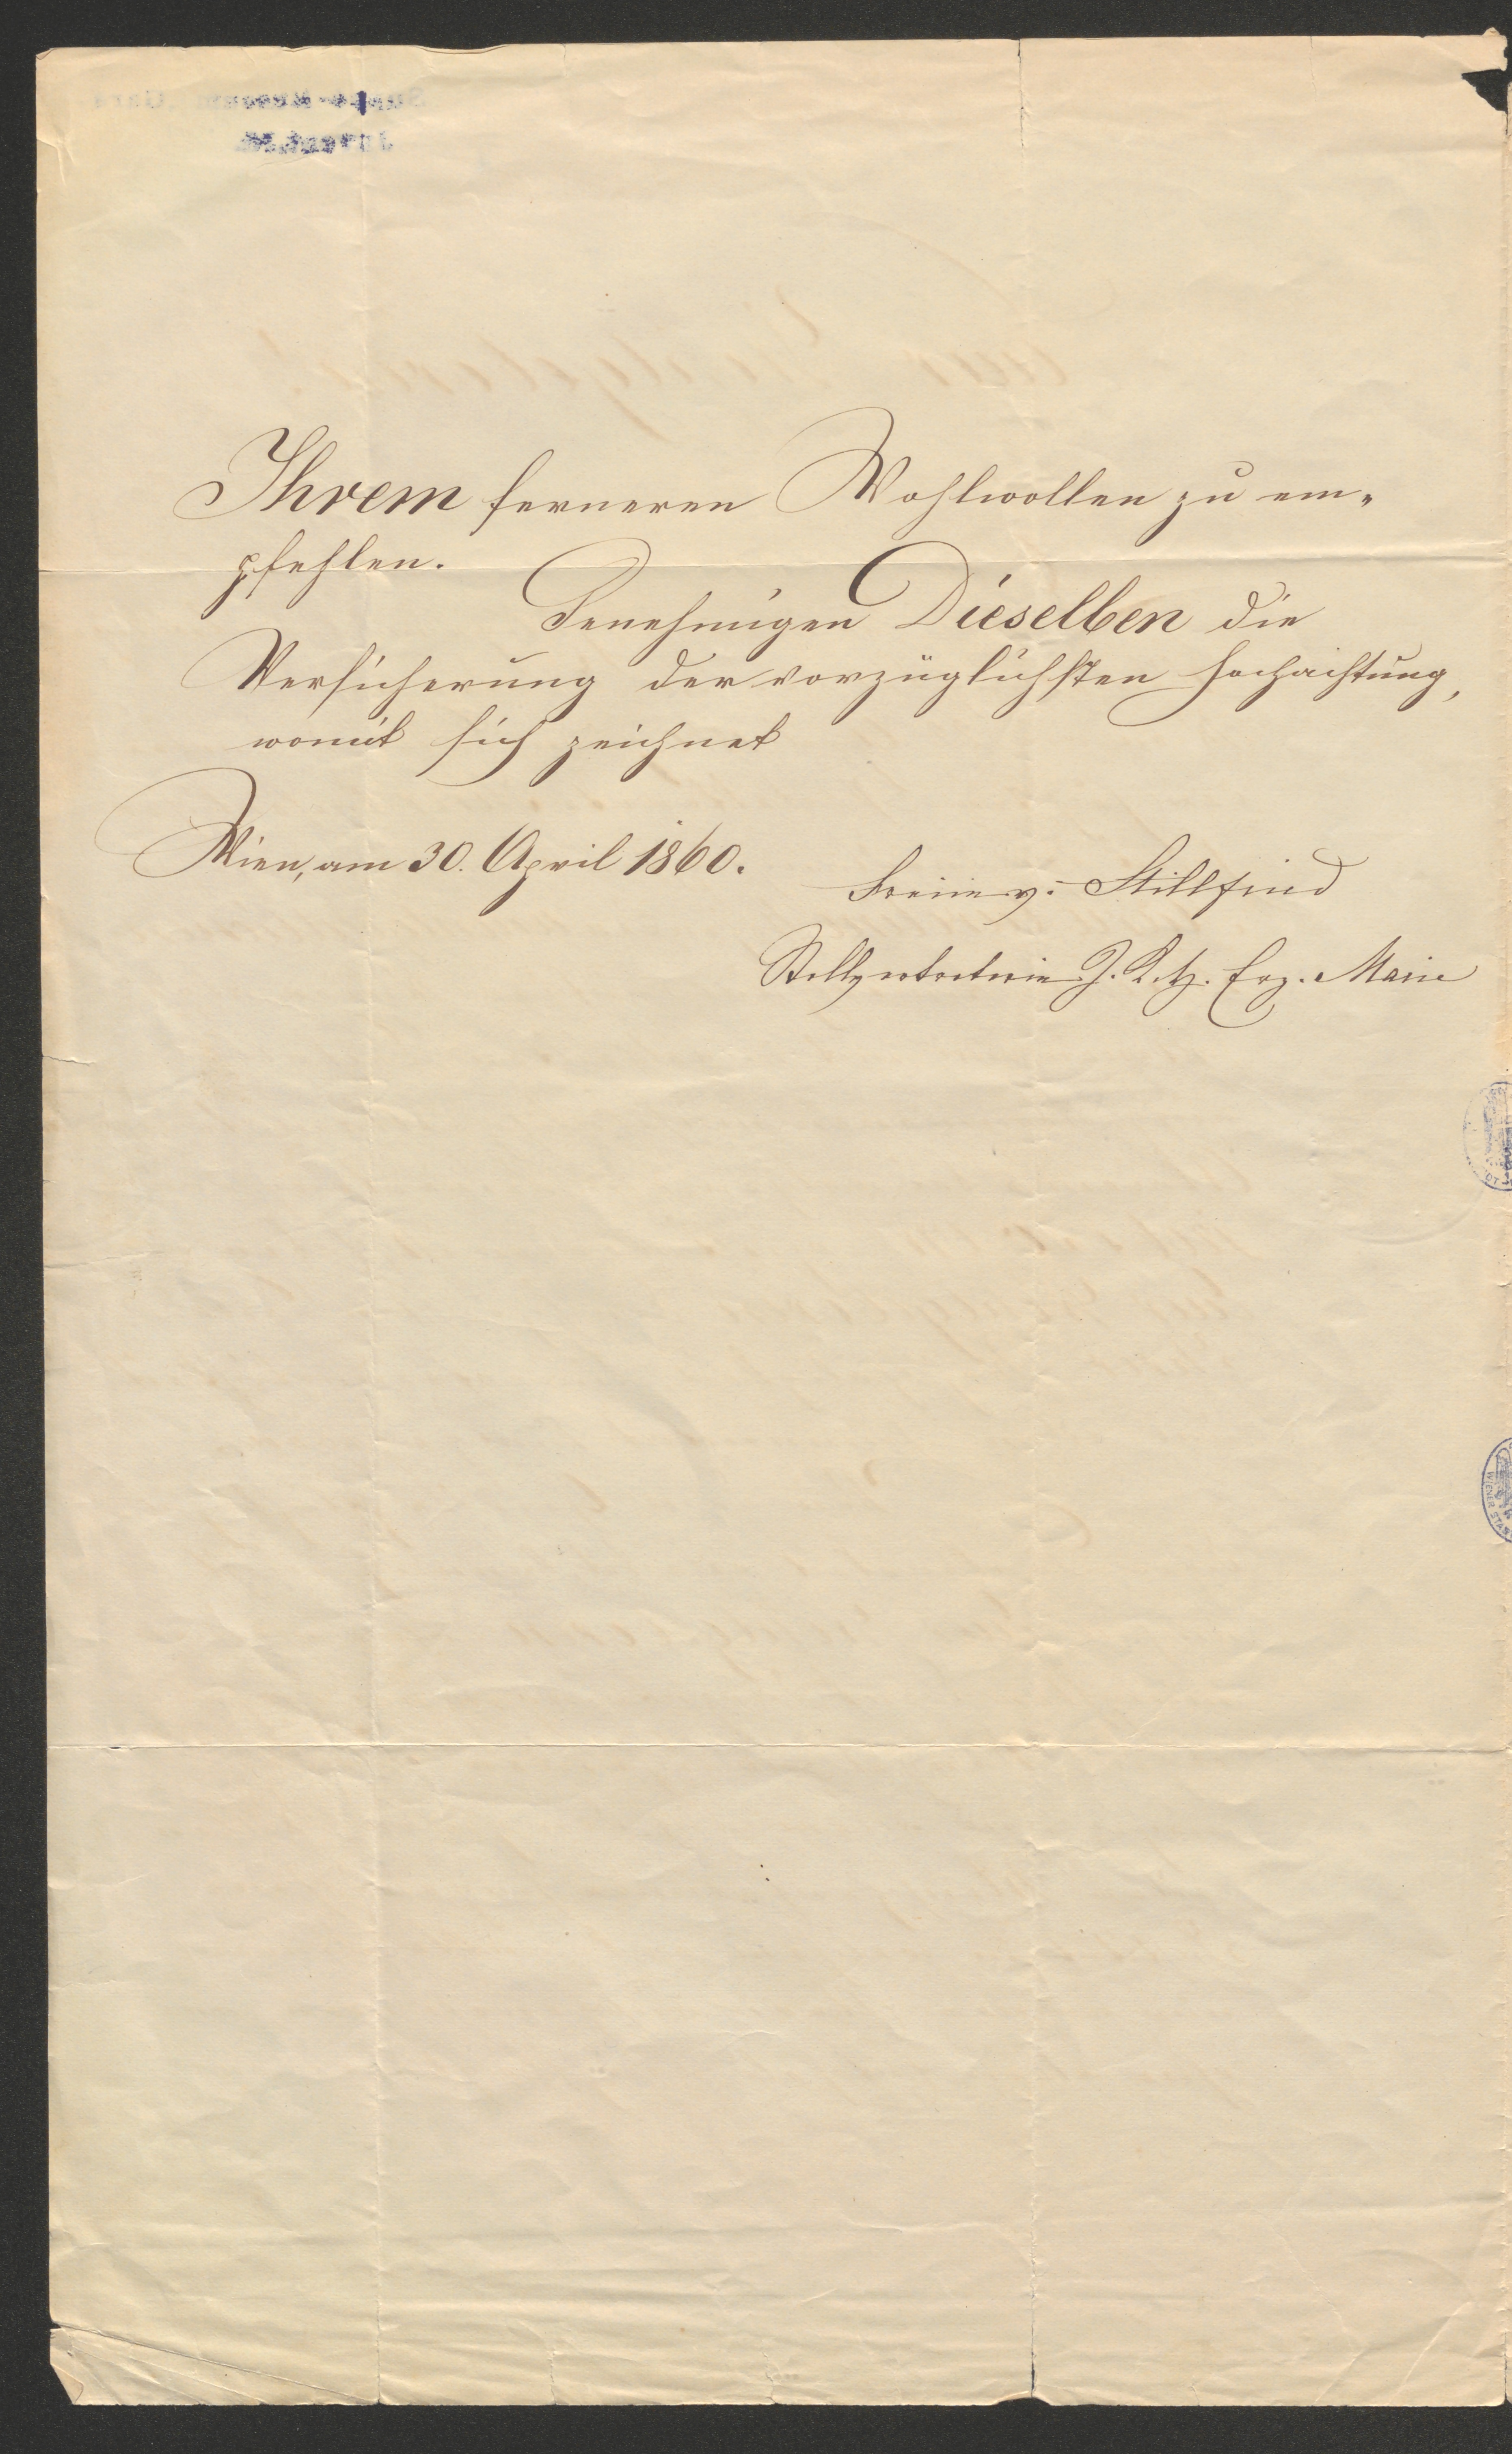 Ihrem ferneren Wohlwollen zu em-
pfehlen.
Genehmigen Dieselben die
Versicherung der vorzüglichsten Hochachtung,
womit sich zeichnet
Wien, am 30. April 1860.
Freiin v. Stillfried
Stellvertreterin I. K. H. Erz. Marie